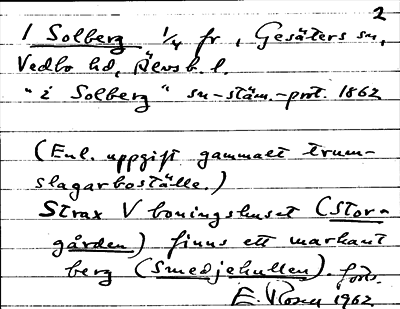 2
1 Solberg 1/4 fr, Gesäters sn,
Vedbo hd, Älvsb. l.
"i Solberg" sn-stäm.-prot. 1862
(Enl. uppgift gammalt trum-
slagarboställe.)
Strax V boningshuset (Stor-
gården) finns ett markant
berg (Smedjekullen). forts.
E. Rosen 1962